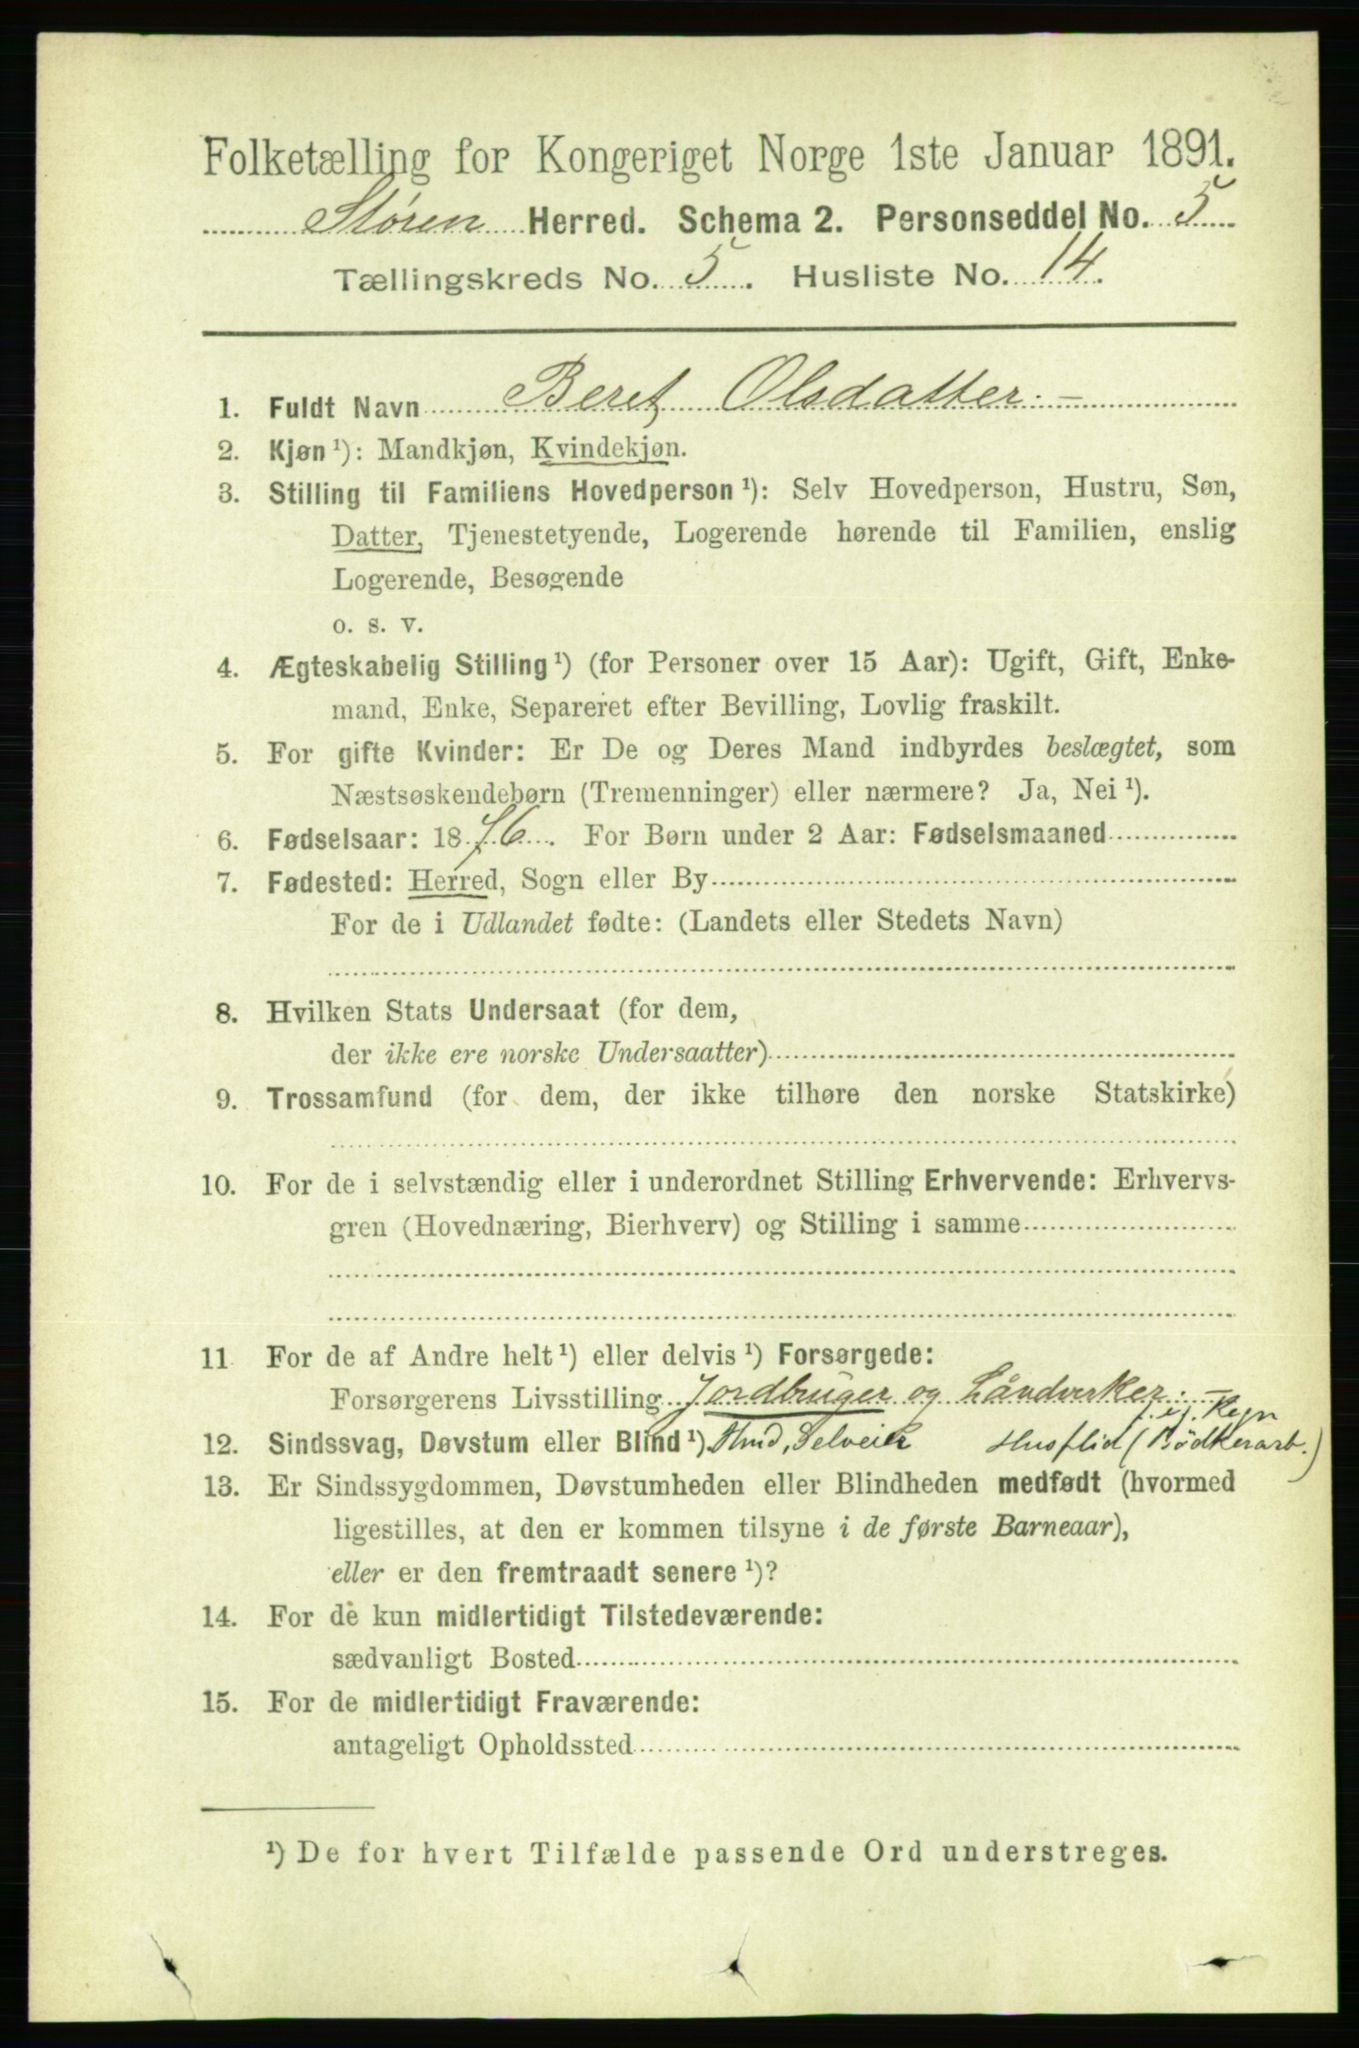 Folketælling for Kongeriget Norge 1ste Januar 1891.
Støren Herred. Schema 2. Personseddel No. 5
Tællingskreds No. 5. Husliste No. 14.
1. Fuldt Navn Beret Olsdatter. –
2. Kjøn ¹): Mandkjøn, Kvindekjøn.
3. Stilling til Familiens Hovedperson ¹): Selv Hovedperson, Hustru, Søn,
Datter, Tjenestetyende, Logerende hørende til Familien, enslig
Logerende, Besøgende
o. s. v.
4. Ægteskabelig Stilling ¹) (for Personer over 15 Aar): Ugift, Gift, Enke-
mand, Enke, Separeret efter Bevilling, Lovlig fraskilt.
5. For gifte Kvinder: Er De og Deres Mand indbyrdes beslægtet, som
Næstsøskendebørn (Tremenninger) eller nærmere? Ja, Nei ¹).
6. Fødselsaar: 1876. For Børn under 2 Aar: Fødselsmaaned
7. Fødested: Herred, Sogn eller By
For de i Udlandet fødte: (Landets eller Stedets Navn)
8. Hvilken Stats Undersaat (for dem,
der ikke ere norske Undersaatter)
9. Trossamfund (for dem, der ikke tilhøre den norske Statskirke)
10. For de i selvstændig eller i underordnet Stilling Erhvervende: Erhvervs-
gren (Hovednæring, Bierhverv) og Stilling i samme
11 For de af Andre helt ¹) eller delvis ¹) Forsørgede:
Forsørgerens Livsstilling Jordbruger og Håndverker. –
12. Sindssvag, Døvstum eller Blind ¹). Smd, Selveier Husflid (Bødkerarb.)
13. Er Sindssygdommen, Døvstumheden eller Blindheden medfødt (hvormed
ligestilles, at den er kommen tilsyne i de første Barneaar),
eller er den fremtraadt senere ¹)?
14. For de kun midlertidigt Tilstedeværende:
sædvanligt Bosted
15. For de midlertidigt Fraværende:
antageligt Opholdssted
¹) De for hvert Tilfælde passende Ord understreges.